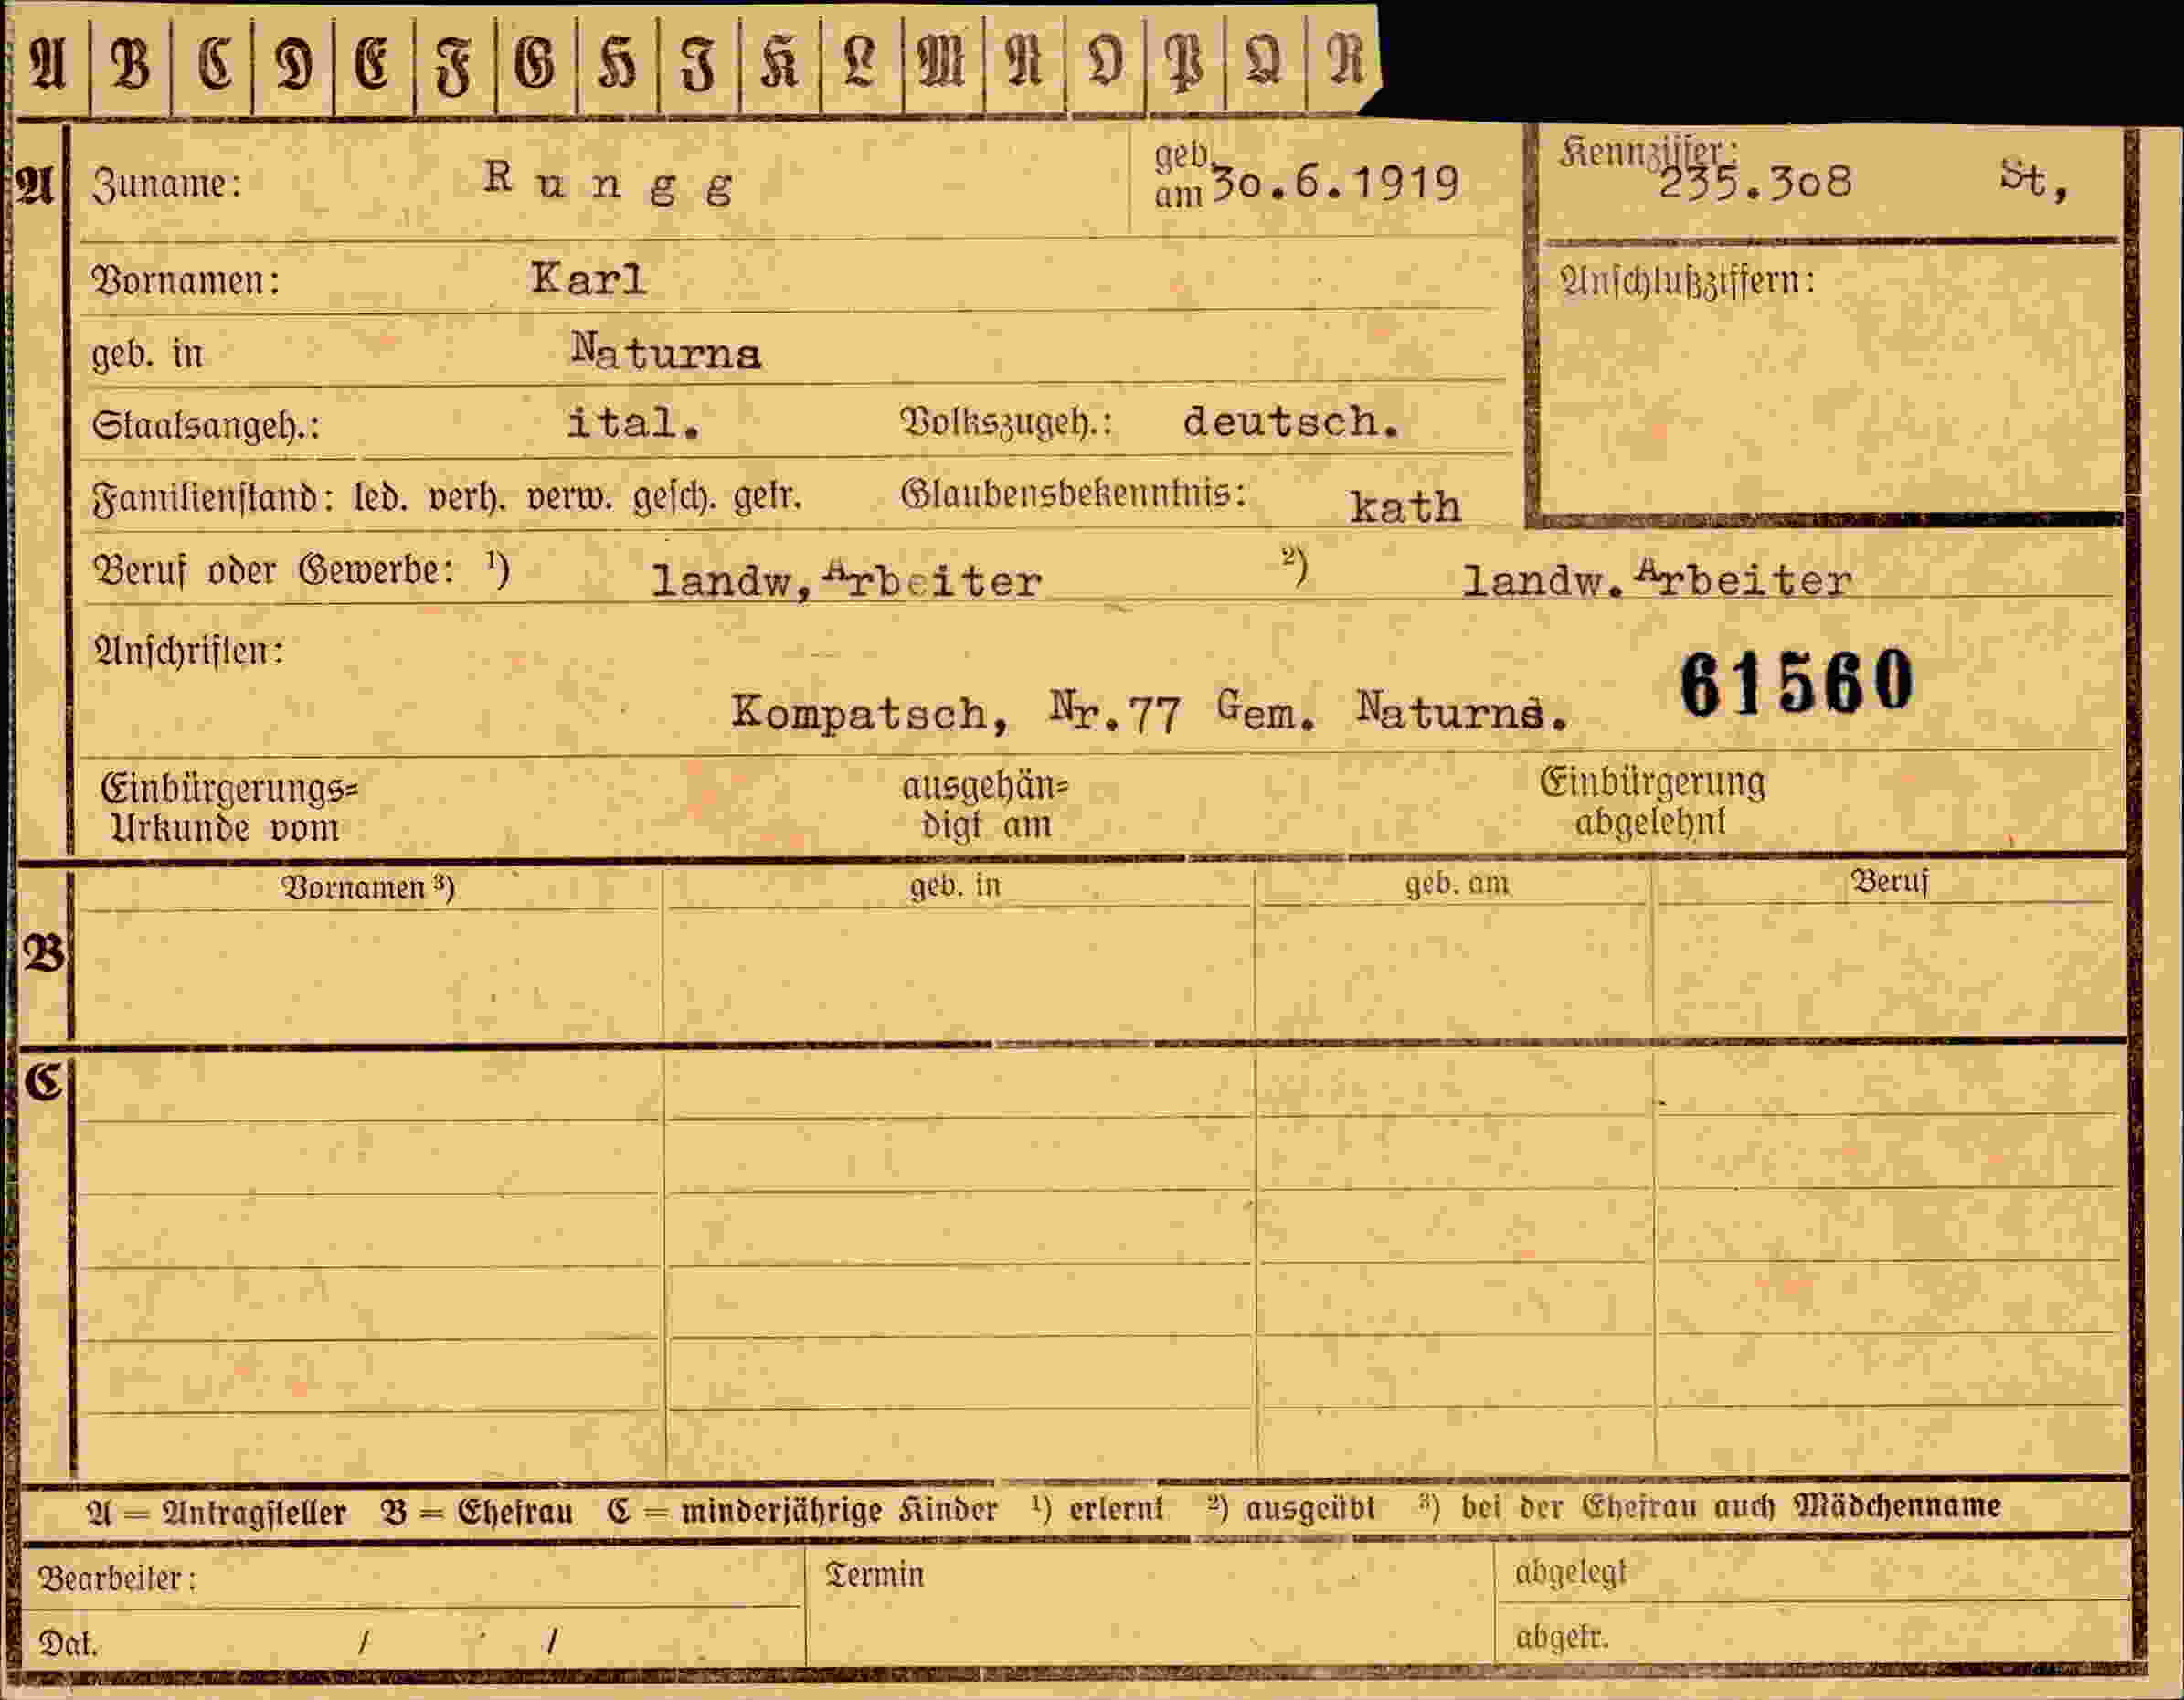 A B C D E F G H I K L M N O P Q R
A Zuname: Rungg geb. am 30.6.1919 Kennziffer: 235.308 St,
Vornamen: Karl Anschlußziffern:
geb. in Naturna
Staatsangeh.: ital. Volkszugeh.: deutsch.
Familienstand: led. verh. verw. gesch. getr. Glaubensbekenntnis: kath
Beruf oder Gewerbe: 1) landw, Arbeiter 2) landw. Arbeiter
Anschriften: 61560
Kompatsch, Nr.77 Gem. Naturns.
Einbürgerungs= ausgehän= Einbürgerung
Urkunde vom digt am abgelehnt
Vornamen 3) geb. in geb. am Beruf
B
C
A = Antragsteller B = Ehefrau C = minderjährige Kinder 1) erlernt 2) ausgeübt 3) bei der Ehefrau auch Mädchenname
Bearbeiter: Termin abgelegt
Dat. / / abgetr.